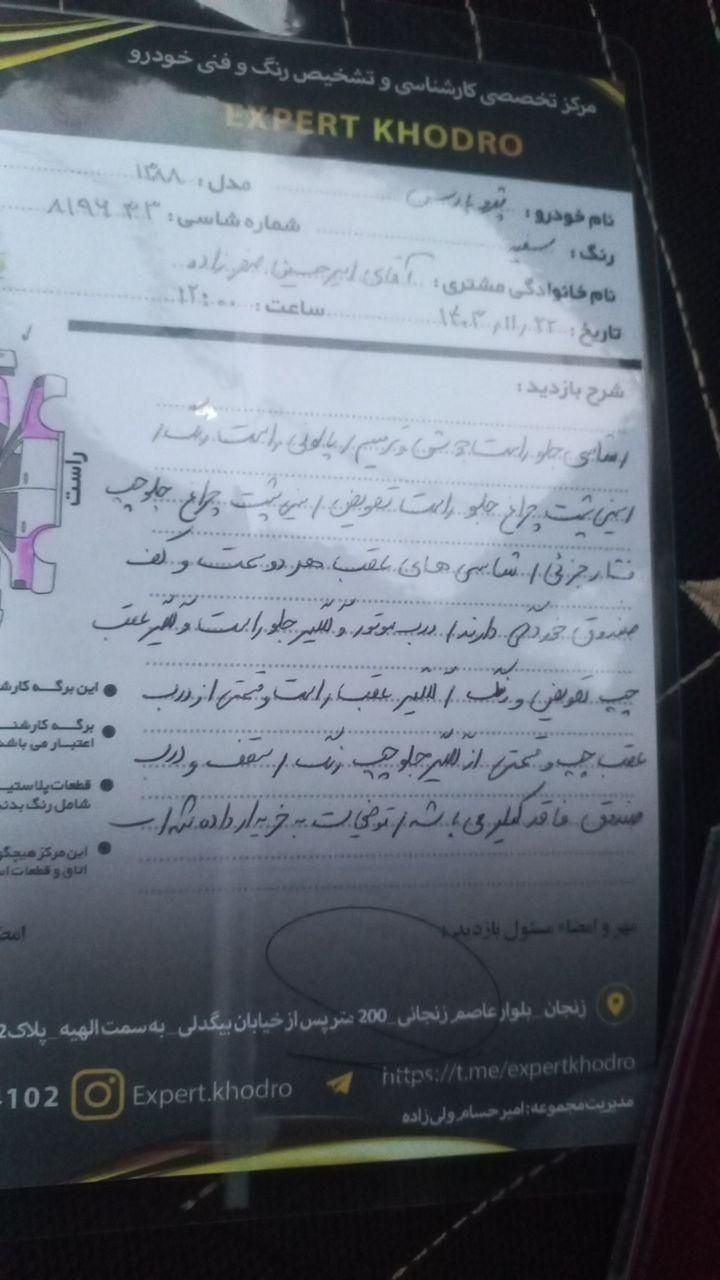 مرکز تخصصی کارشناسی و تشخیص رنگ و فنی خودرو
EXPERT KHODRO
نام خودرو: پژو پارس مدل: ۱۳۸۸
رنگ: سفید شماره شاسی: ۸۱۹۶۴۳
نام خانوادگی مشتری: آقای امیرحسین صفرزاده
تاریخ: ۱۴۰۳/۱۱/۲۲ ساعت: ۱۲:۰۰
شرح بازدید:
/ شاسی جلو راست جوش و ترمیم / پالونی راست رنگ /
سینی پشت چراغ جلو راست تعویض / سینی پشت چراغ جلو چپ
فشار جزئی / شاسی های عقب هر دو سمت و کف
صندوق خوردگی دارند / درب موتور و گلگیر جلو راست و گلگیر عقب
چپ تعویض و رنگ / گلگیر عقب راست و قسمتی از درب
عقب چپ و قسمتی از گلگیر جلو چپ رنگ / سقف و درب
صندوق فاقد کیلر می باشد / توضیحات به خریدار داده شد
راست
این برگه کارش
برگه کارشنـ
اعتبار می باشد
قطعات پلاستیـ
شامل رنگ بدنـ
این مرکز هیچگو
اتاق و قطعات اسـ
مهر و امضاء مسئول بازدید:
امضـ
زنجان _ بلوار عاصم زنجانی _ 200 متر پس از خیابان بیگدلی _ به سمت الهیه _ پلاک 2
https://t.me/expertkhodro
Expert.khodro
4102
مدیریت مجموعه: امیر حسام ولی زاده